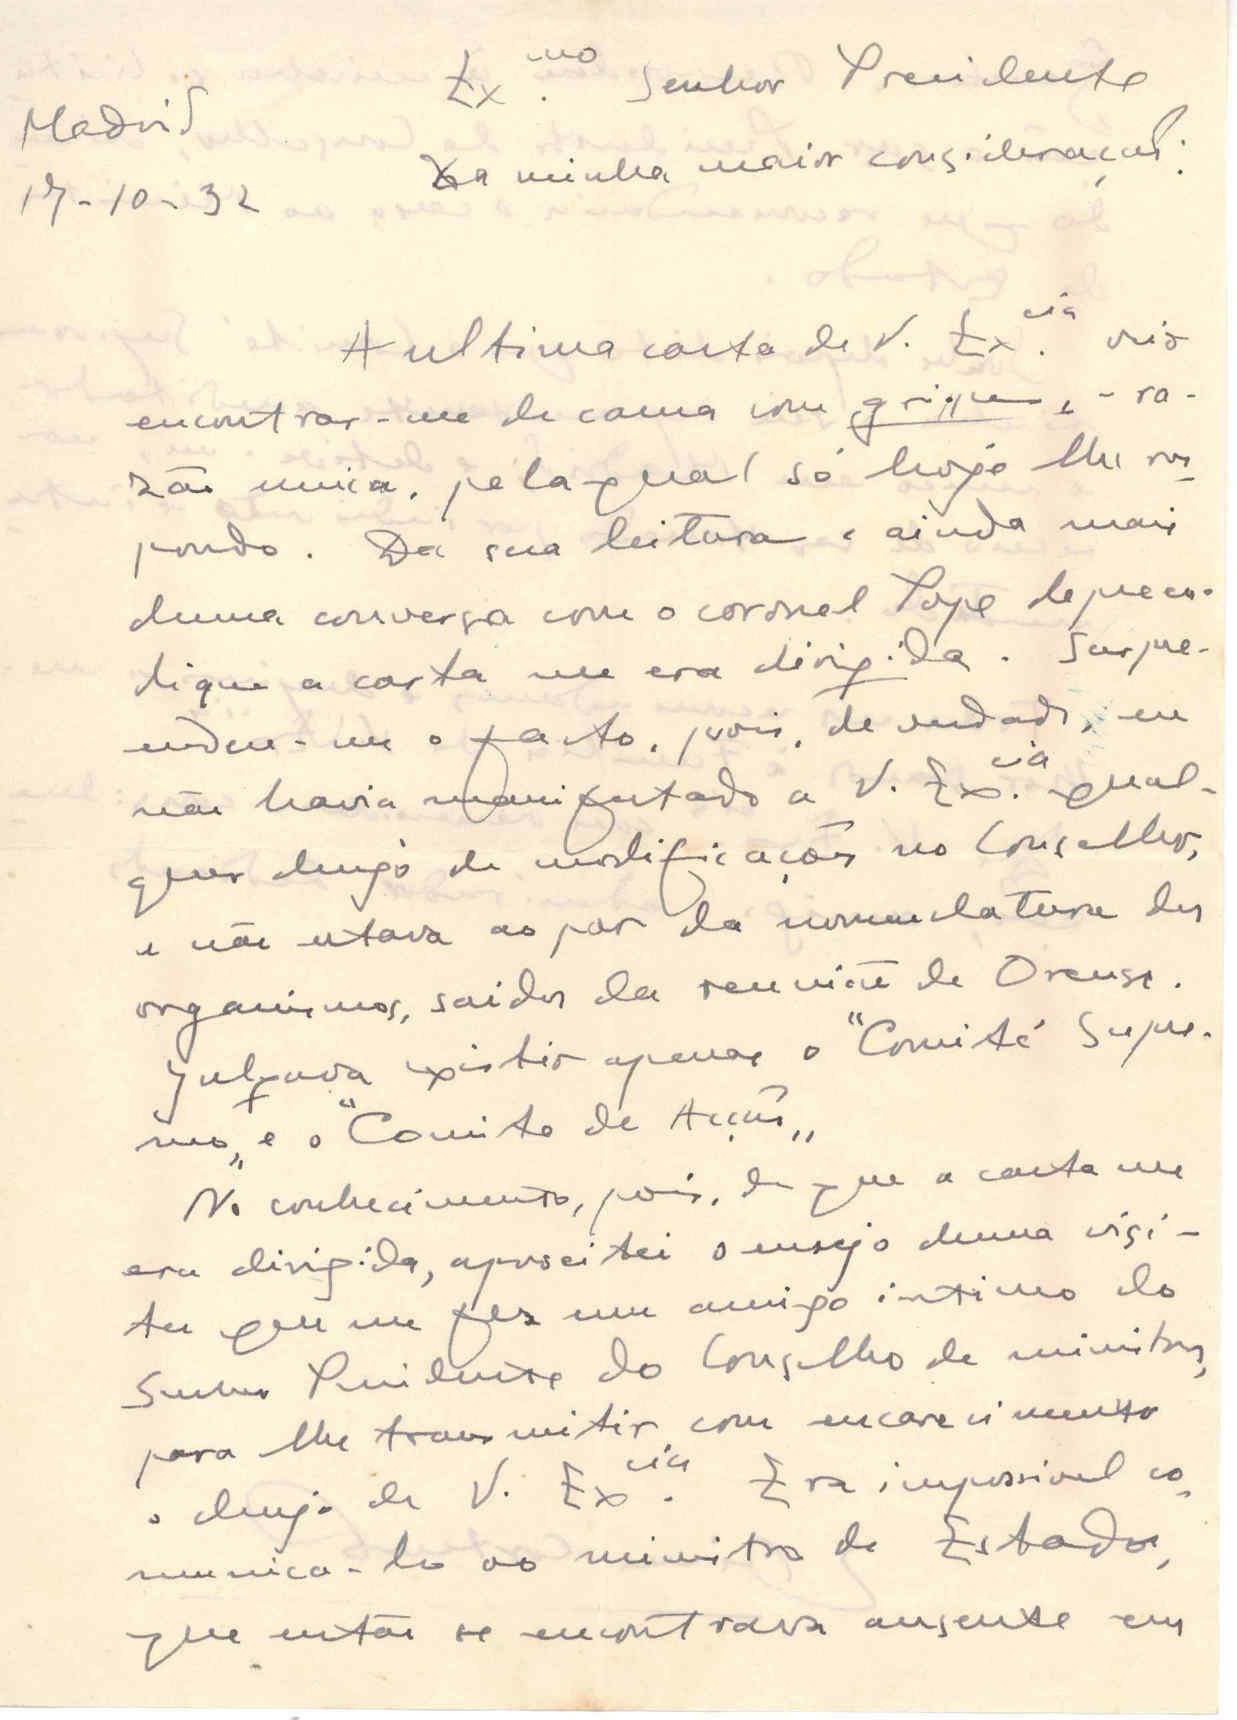 Ex.mo Senhor Presidente
Madrid
17-10-32
Da minha maior consideração:
A ultima carta de V. Ex.cia veio
encontrar-me de cama com grippe, - ra-
zão unica, pela qual só hoje lhe res-
pondo. Da sua leitura e ainda mais
duma conversa com o coronel Pope depreen-
di que a carta me era dirigida. Surpre-
endeu-me o facto, pois, de verdade, eu
não havia manifestado a V. Ex.cia qual-
quer desejo de modificações no Conselho,
e não estava ao par da nomenclatura dos
organismos, saidos da reunião de Orense.
Julgava existir apenas o "Comité Supre-
mo" e o "Comite de Acção"
No conhecimento, pois, de que a carta me
era dirigida, aproveitei o ensejo duma visi-
ta que me fez um amigo intimo do
Senhor Presidente do Conselho de ministros,
para lhe transmitir com encarecimento
o desejo de V. Ex.cia. Era impossivel co-
munica-lo ao ministro de Estado,
que então se encontrava ausente em